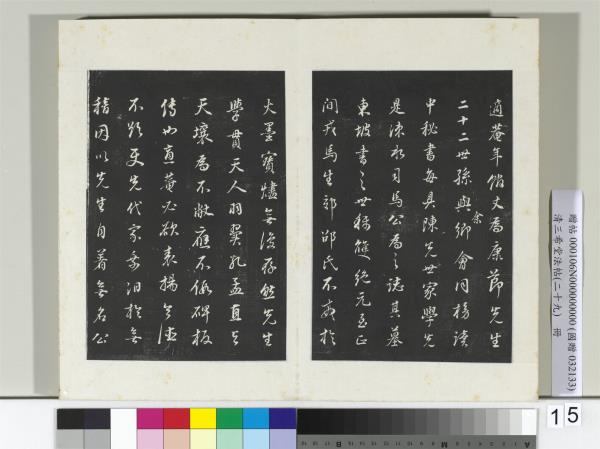 適菴年館丈為康節先生
二十二世孫與余鄉會同榜讀
中秘書每具陳先世家學先
是涑水司馬公為之誌其墓
東坡書之世稱雙絕元至正
間戎馬生郊邵氏不戒於
火墨寶燼無復存然先生
學貫天人羽翼孔孟直與
天壤為不敝應不係碑板
傳也適菴必欲表揚令德
不朽先代家乘泪於無
稽因以先生自著無名公
贈帖 000106N000000000 (國贈 032133)
清三希堂法帖(二十九) 冊
15